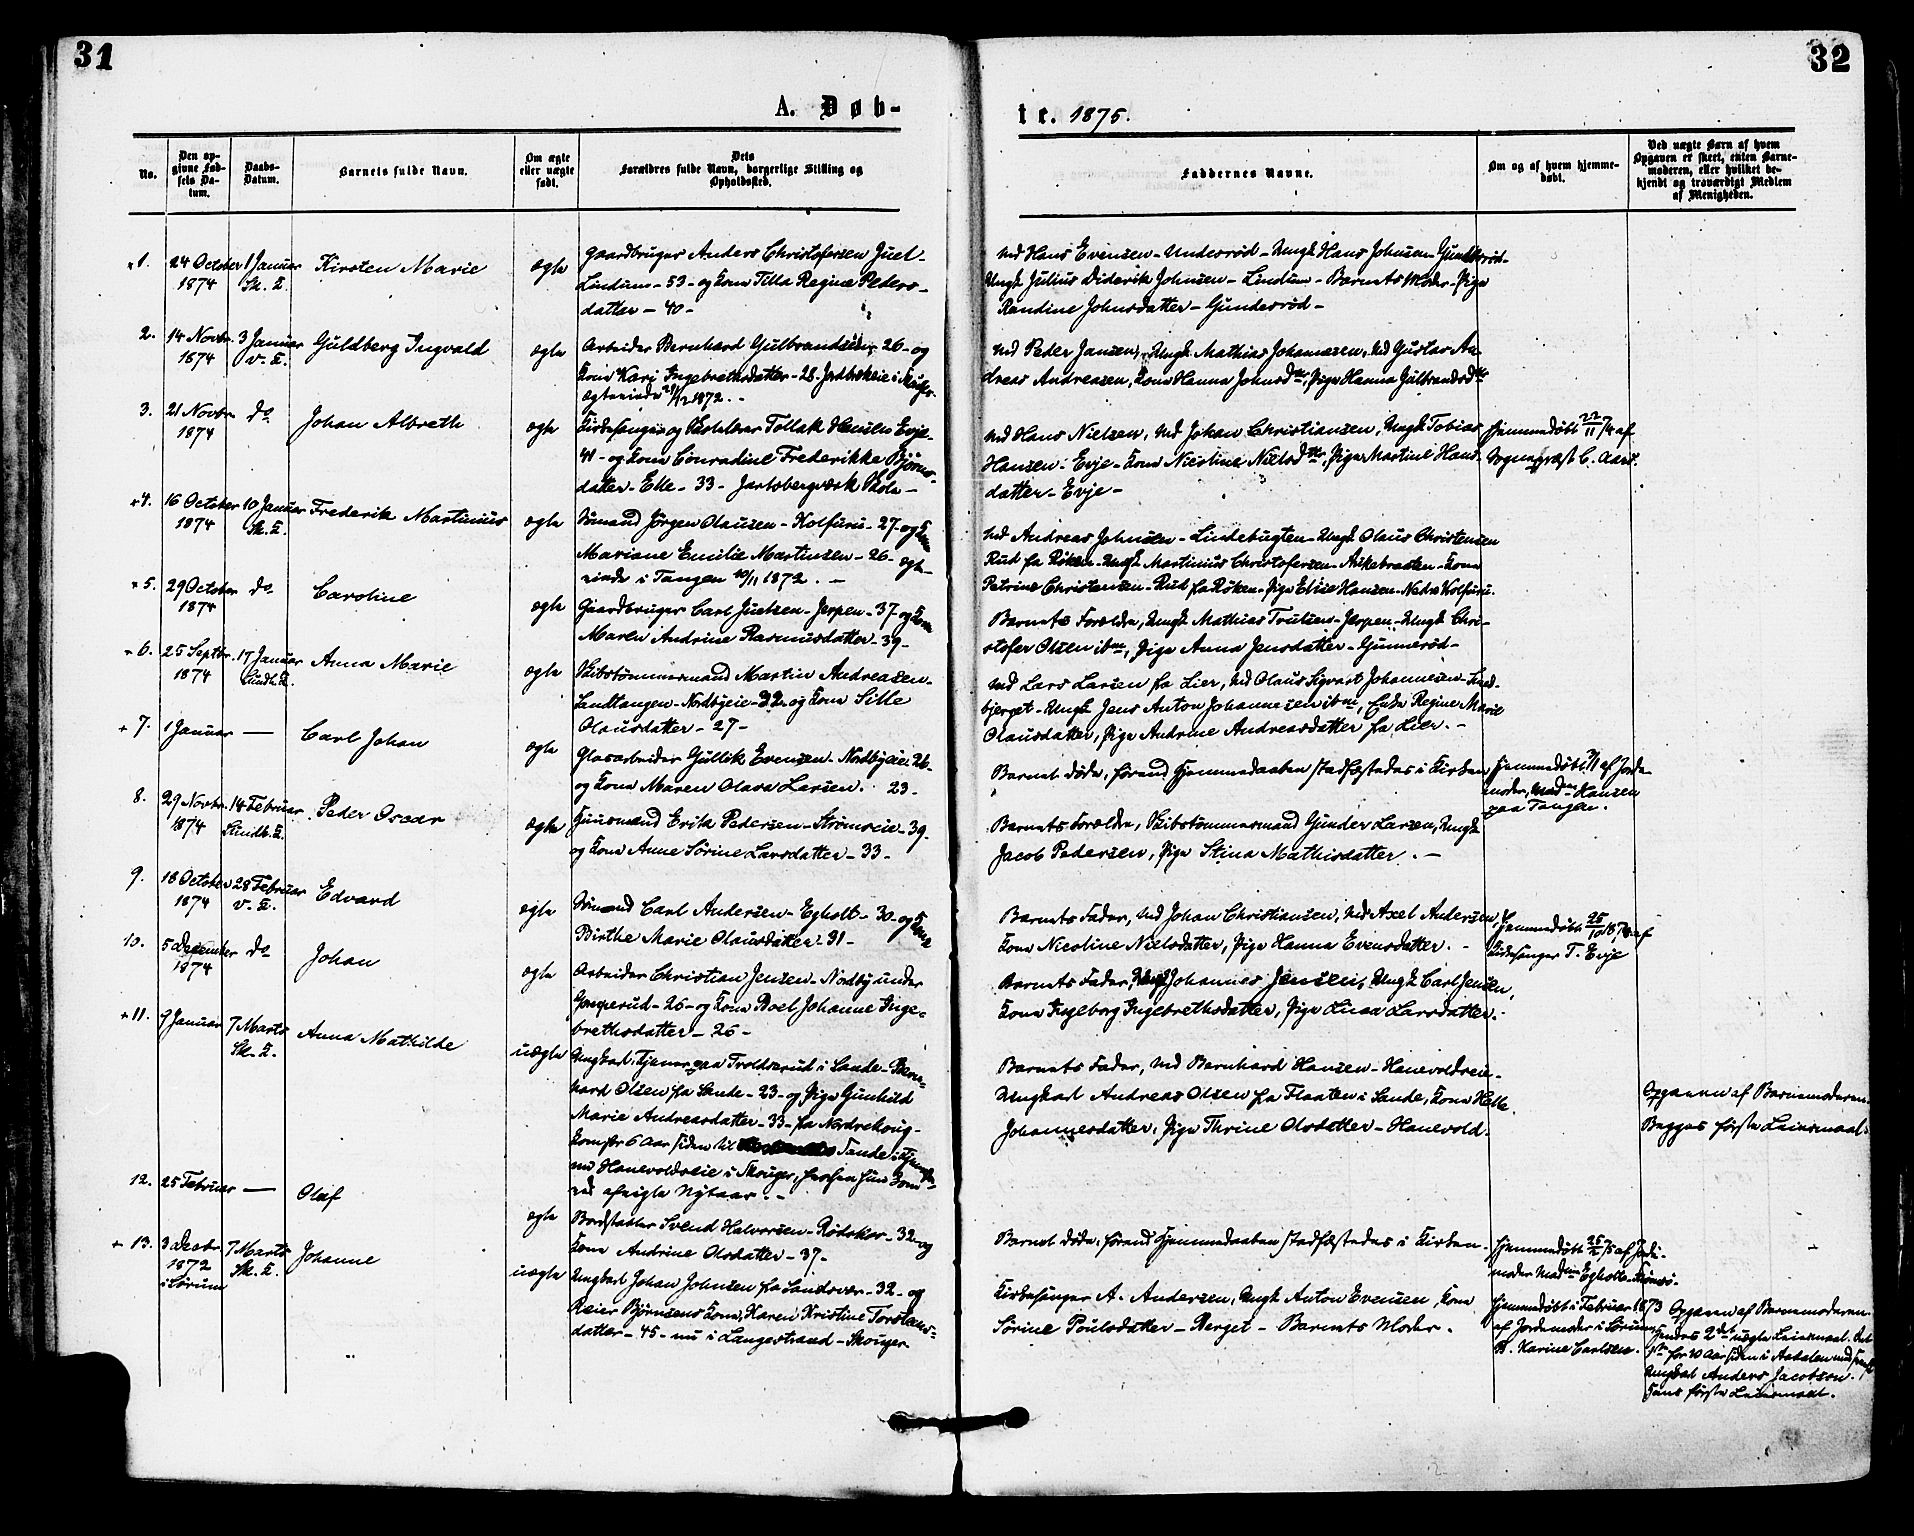 31
32
A. Døb-
te. 1875.
No.
Den op-
givne Fød-
sels Da-
tum.
Daabs-
Datum.
Barnets fulde Navn.
Om ægte
eller uægte
født.
Dets
Forældres fulde Navn, borgerlige Stilling og
Opholdssted.
Faddernes Navne.
Om og af hvem hjemme-
døbt.
Ved uægte Barn af hvem
Opgaven er skeet, enten Barne-
moderen, eller hvilket be-
kjendt og troværdigt Medlem
af Menigheden.
1. 24 October 1 Januar Kirsten Marie ægte
1874 Sk. K.
Gaardbruger Anders Christofersen Juel-
Lindum - 53 - og Kone Tilla Regine Peders-
datter - 40 -
Ud Hans Evensen - Underød - Ungk. Hans Johnsen Gunderød -
Ungk Julius Diderik Johnsen - Lindum - Barnets Moder - Pige
Randine Johnsdatter - Gunderød -
2. 14 Novbr. 3 Januar Guldberg Ingvald ægte
1874 v. K.
Arbeider Bernhard Gulbrandsen, 26 - og
Kone Kari Ingebrethsdatter - 28.
1872. -
Ud Peder Jansen, Ungk. Mathias Johannesen, Ud Gustav An-
dreas Andreasen, Kone Hanna Johnsdtr, Pige Hanna Gulbrandsdtr
3. 21 Novbr. do Johan Albreth ægte
1874
Kirkesanger og Skolelærer Tollak Hansen Evje -
41 - og Kone Conradine Frederikke Bjørns-
datter - Elle - 33 - Jarlsbergværk Skole -
Ud Hans Nielsen, Ud Johan Christiansen, Ungk Tobias
Hansen - Evje - Kone Nicoline Nielsdtr, Pige Martine Hans-
datter - Evje -
Hjemmedøbt 22/11 74 af
Sognepræst C. Aars.
4. 16 October 10 Januar Frederik Martinius ægte
1874 Sk. K.
Sømand Jørgen Olausen - Kolfuru - 27 - og Kone
Mariane Emilie Martinsen - 26 - ægte-
viede i Tangen 10/11 1872. -
Ud Andreas Johnsen - Lindebugten - Ungk Olaus Christensen
Rud fra Røken - Ungk Martinius Christofersen - Askebraaten - Kone
Petrine Christensen - Rud fra Røken - Pige Elise Hansen - Nedre Kolfuru.
5. 29 October do Caroline ægte
1874
Gaardbruger Carl Juelsen - Jerpen - 37 - og Kone
Maren Andrine Rasmusdatter - 39 -
Barnets Forældre, Ungk Mathias Trulsen - Jerpen - Ungk Chri-
stofer Olsen ibm, Pige Anna Jensdatter - Gunnerød -
6. 25 Septbr. 17 Januar Anna Marie ægte
1874 Sundb. K.
Skibstømmermand Martin Andreasen -
Sandtangen - Nordbyeie - 32 - og Kone Sille
Olausdatter - 27 -
Ud Lars Larsen fra Lier, Ud Olaus Sigvart Johannesen -
bjerget - Ungk Jens Anton Johannesen ibm, Enke Regine Marie
Olausdatter, Pige Andrine Andreasdatter fra Lier. -
7. 1 Januar — Carl Johan ægte
Glasarbeider Gullik Evensen - Nordbyeie - 26 -
og Kone Maren Olava Larsen. 23 -
Barnet døde, førend Hjemmedaaben stadfæstedes i Kirken
Hjemmedøbt af Jorde-
moder, Hansen
paa Tangen.
8. 29 Novbr. 14 Februar Peder Oscar ægte
1874 Sundb. K.
Huusmand Erik Pedersen - Strømseie - 39 -
og Kone Anne Sørine Larsdatter - 33 -
Barnets Forældre, Skibstømmermand Gunder Larsen, Ungk
Jacob Pedersen, Pige Stina Mathisdatter. -
9. 18 October 28 Februar Edvard ægte
1874 v. K.
Sømand Carl Andersen - Egholt - 30 - og Kone
Birthe Marie Olausdatter - 31 -
Barnets Fader, Ud Johan Christiansen, Ud Axel Andersen,
Kone Nicoline Nielsdatter, Pige Hanna Evensdatter. -
Hjemmedøbt 25/10 1874 af
Kirkesanger T. Evje
10. 5 December do Johan ægte
1874
Arbeider Christian Jensen - Nordby under
- 26 - og Kone Boel Johanne Inge-
brethsdatter - 26 -
Barnets Fader, Ungk Johannes Jensen, Ungk Carl Jensen,
Kone Ingeborg Ingebrethsdatter, Pige Lina Larsdatter. -
11. 9 Januar 7 Marts Anna Mathilde uægte
Sk. K.
Ungkarl, Tjener paa Troldsrud i Sande - Bern-
hard Olsen fra Sande - 23 - og Pige Gunhild
Marie Andreasdatter - 33 - fra Nordrehoug -
kom for 6 Aar siden til Sande i Tjeneste
nu Hanevoldseie i Skouger,
afvigte Nytaar. -
Barnets Fader, Ud Bernhard Hansen - Hanevoldseie -
Ungkarl Andreas Olsen fra Flaaten i Sande, Kone Helle
Johannesdatter, Pige Thrine Olsdatter - Hanevold.
Opgaven af Barnemoderen.
Begges første Leiermaal.
12. 25 Februar — Olaf ægte
Bordstabler Svend Halvorsen - Rødskor - 32 - og
Kone Andrine Olsdatter - 37 -
Barnet døde, førend Hjemmedaaben stadfæstedes i Kirken -
Hjemmedøbt 25/2 75 af Jorde-
moder Egholt - Strømsø.
13. 3 Decbr. 7 Marts Johanne uægte
1872 Sk. K.
i Sørum
Ungkarl Johan Johnsen fra Sandsvær - 32 - og
Reier Bjørnsens Kone, Karen Kristine Torstens-
datter - 45 - nu i Langestrand - Skouger.
Kirkesanger A. Andersen, Ungk Anton Evensen, Kone
Sørine Poulsdatter - Berget - Barnets Moder.
Hjemmedøbt i Februar 1873
af Jordemoder i Sørum
Karine Carlsen.
Opgaven af Barnemoderen
Hendes 2det uægte Leiermaal. Det
1ste for 10 Aar siden i Aadalen med
Ungkarl Anders Jacobsen.
Hans første Leiermaal.